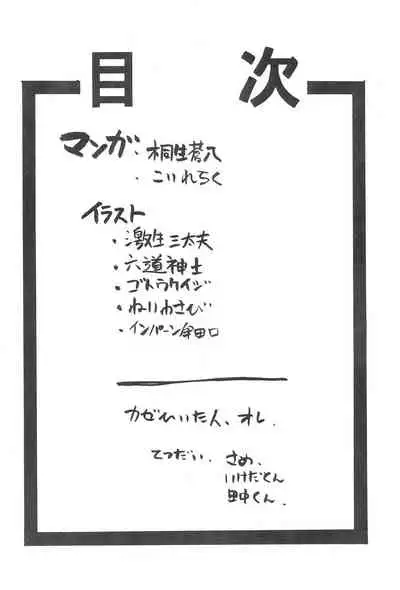 目次
マンガ・桐生蒼八
・こいれらく
イラスト
・激生三太夫
・六道神士
・ゴトウケイジ
・ねりわさび
・インパーン
カゼひいた人、オレ.
てつだい. さめ、
いけだくん
田中くん.